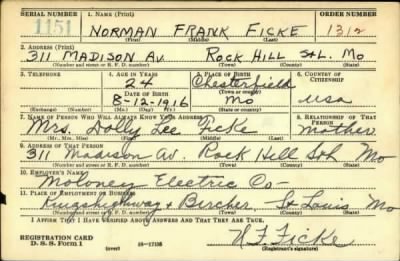 SERIAL NUMBER 1. NAME (Print) ORDER NUMBER
1151 NORMAN FRANK FICKE 1312
(First) (Middle) (Last)
2. ADDRESS (Print)
311 MADISON AV. ROCK HILL StL. MO
(Number and street or R. F. D. number) (Town) (County) (State)
3. TELEPHONE 4. AGE IN YEARS 5. PLACE OF BIRTH 6. COUNTRY OF CITIZENSHIP
24 Chesterfield
DATE OF BIRTH (Town or county)
8-12-1916 Mo USA
(Exchange) (Number) (Mo.) (Day) (Yr.) (State or country)
7. NAME OF PERSON WHO WILL ALWAYS KNOW YOUR ADDRESS 8. RELATIONSHIP OF THAT PERSON
Mrs. Dolly Lee Ficke Mother
(Mr., Mrs., Miss) (First) (Middle) (Last)
9. ADDRESS OF THAT PERSON
311 Madison Av. Rock Hill Mo
(Number and street or R. F. D. number) (Town) (County) (State)
10. EMPLOYER'S NAME
Moloney Electric Co
11. PLACE OF EMPLOYMENT OR BUSINESS
Kingshighway + Bircher St Louis Mo
(Number and street or R. F. D. number) (Town) (County) (State)
I AFFIRM THAT I HAVE VERIFIED ABOVE ANSWERS AND THAT THEY ARE TRUE.
REGISTRATION CARD
D. S. S. Form 1 (over) 16-17105 N F Ficke
(Registrant's signature)